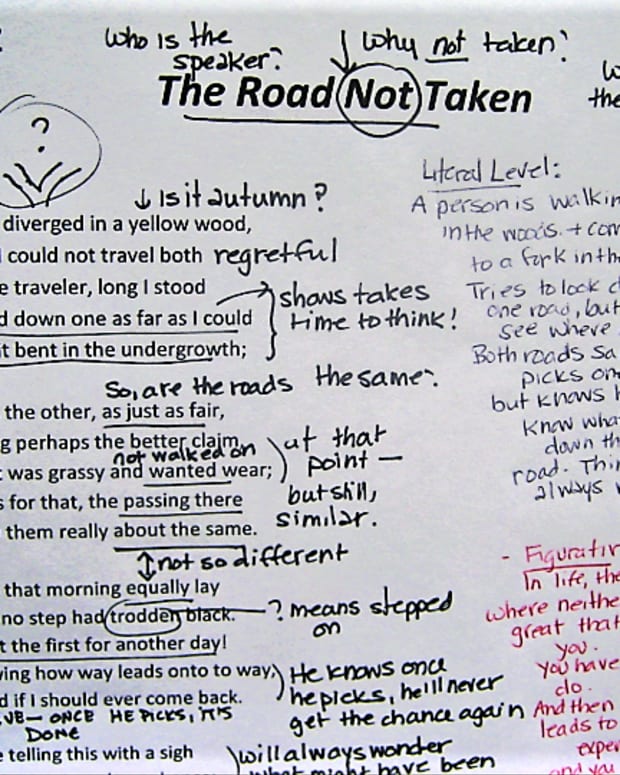 Who is the
speaker?
Why not taken?
The Road Not Taken
the
?
Literal Level:
A person is walkin
in the woods. + com
to a fork in th
Tries to look d
one road, but
see where
Both roads sa
picks on
but knows h
know wha
down th
road. Thin
always w
Is it autumn?
diverged in a yellow wood,
could not travel both regretful
e traveler, long I stood
d down one as far as I could
t bent in the undergrowth;
shows takes
time to think!
So, are the roads the same?
the other, as just as fair,
g perhaps the better claim
not walked on
was grassy and wanted wear;
at that
point —
but still,
similar.
s for that, the passing there
them really about the same.
not so different
that morning equally lay
no step had trodden black.
? means stepped
on
t the first for another day!
ing how way leads onto to way,
d if I should ever come back.
He knows once
he picks, he'll never
get the chance again
VE— ONCE HE PICKS, IT'S
DONE
e telling this with a sigh
will always wonder
what might have been
- Figurativ
In life, the
where neithe
great that
you.
You have
do.
And then
leads to
exper
and you